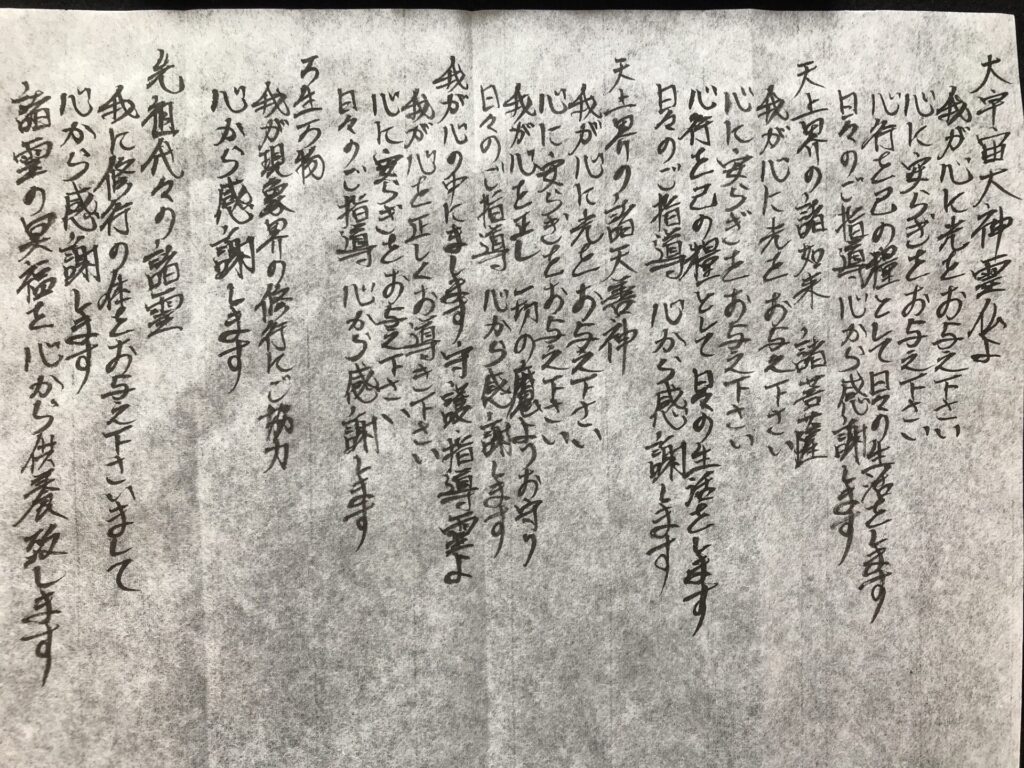 大宇宙大神霊仏よ
我が心に光をお与え下さい
心に安らぎをお与え下さい
心行を己の糧として日々の生活をします
日々のご指導心から感謝します
天上界の諸如来諸菩薩
我が心に光をお与え下さい
心に安らぎをお与え下さい
心行を己の糧として日々の生活をします
日々のご指導 心から感謝します
天上界の諸天善神
我が心に光をお与え下さい
心に安らぎをお与え下さい
我が心を正し 一切の魔よりお守り
日々のご指導 心から感謝します
我が心の中にまします守護指導霊よ
我が心を正しくお導き下さい
心に安らぎをお与え下さい
日々のご指導 心から感謝します
万生万物
我が現象界の修行にご協力
心から感謝します
先祖代々の諸霊
我に修行の体をお与え下さいまして
心から感謝します
諸霊の冥福を心から供養致します